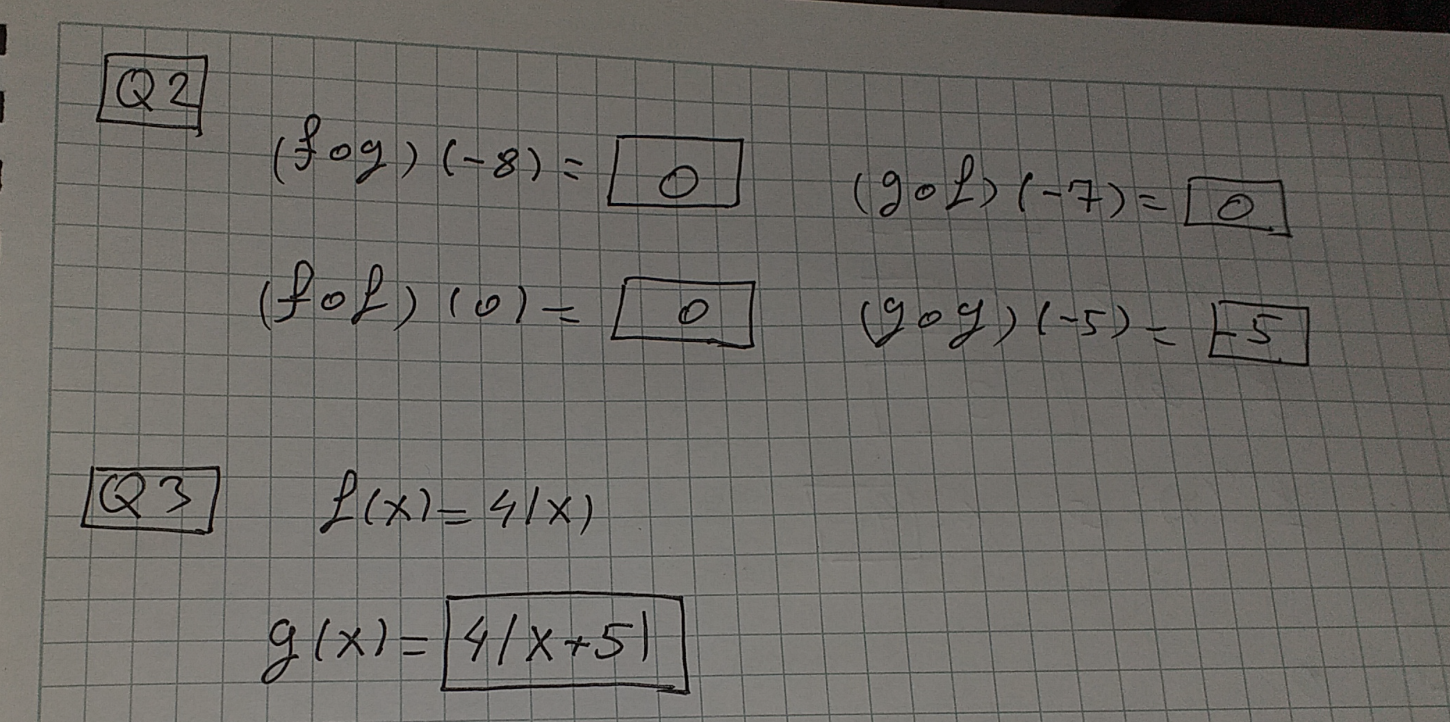 Q2
(fog)(-8) = 0 (gof)(-7) = 0
(fof)(0) = 0 (gog)(-5) = -5
Q3 f(x) = 4|x)
g(x) = 4|x+5|